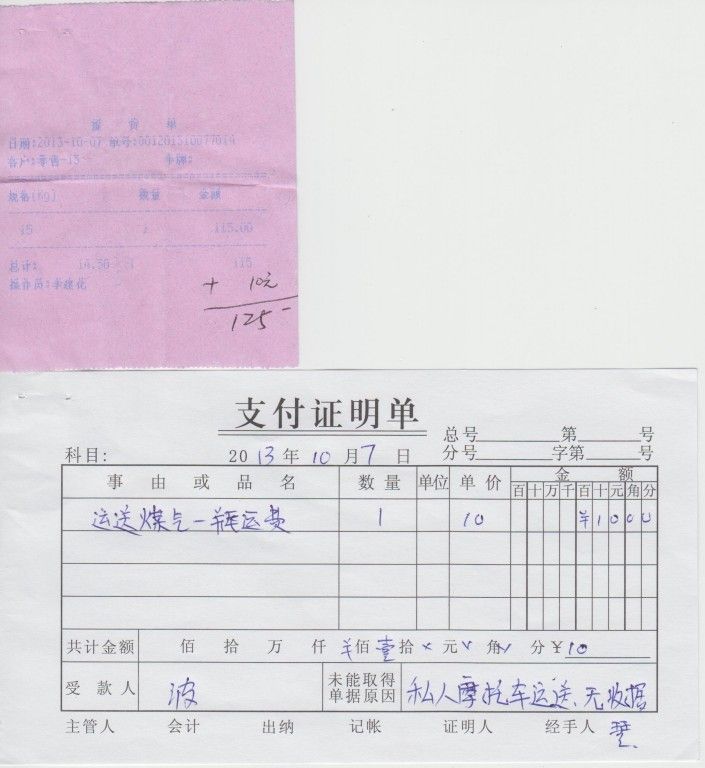 日期:2013-10-07 单号:001201310077014
客户:
规格(kg) 数量 金额
15 115.00
总计: 14.50 115
操作员:李
+ 10元
125-
支付证明单
总号 第 号
科目: 2013年10月7日 分号 字第 号
事由或品名 数量 单位 单价 金额
百十万千百十元角分
运送煤气一瓶运费 1 10 ¥1000
共计金额 佰 拾 万 仟 ¥佰壹拾 元 角 分¥10
受款人 波 未能取得单据原因 私人摩托车运送、无收据
主管人 会计 出纳 记帐 证明人 经手人